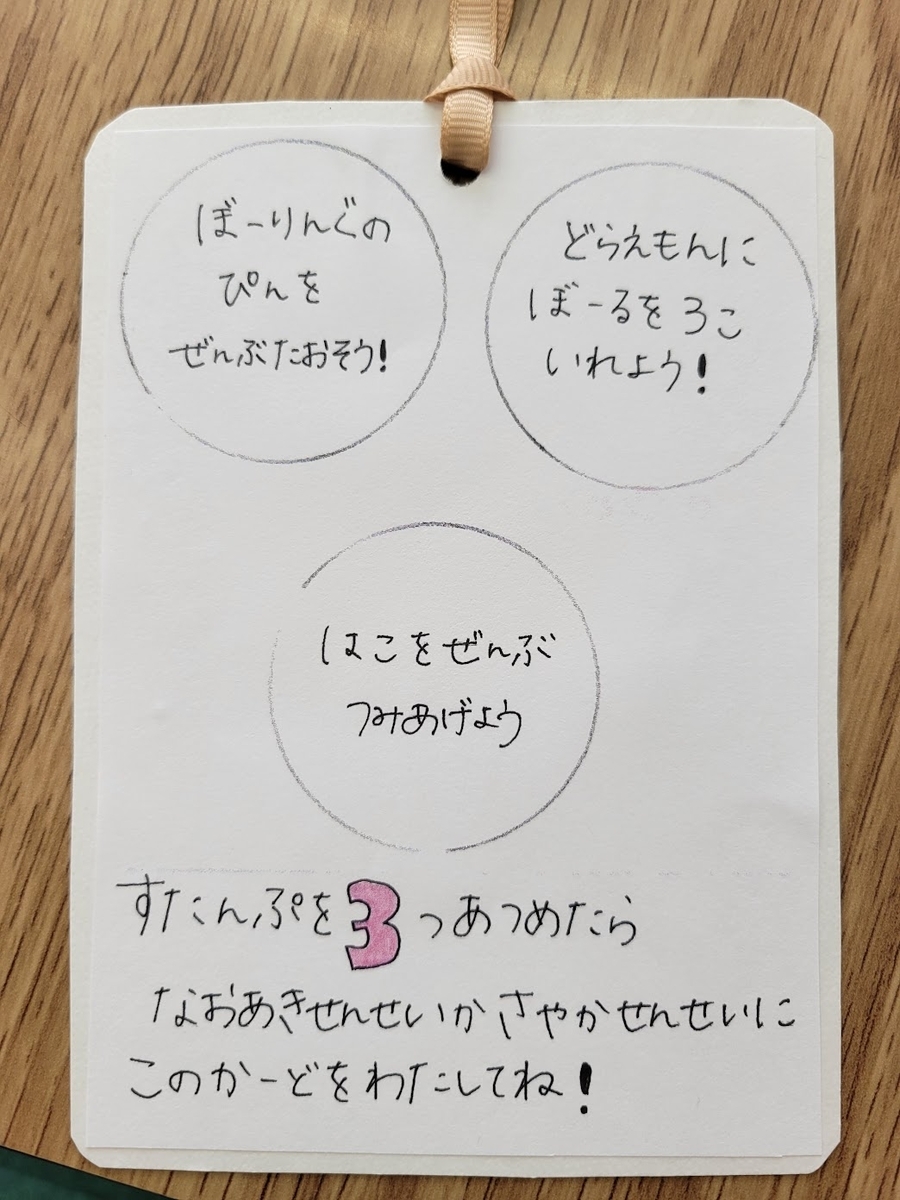 ぼーりんぐの
ぴんを
ぜんぶたおそう!
どらえもんに
ぼーるを3こ
いれよう!
はこをぜんぶ
つみあげよう
すたんぷを3つあつめたら
なおあきせんせいかさやかせんせいに
このかーどをわたしてね!